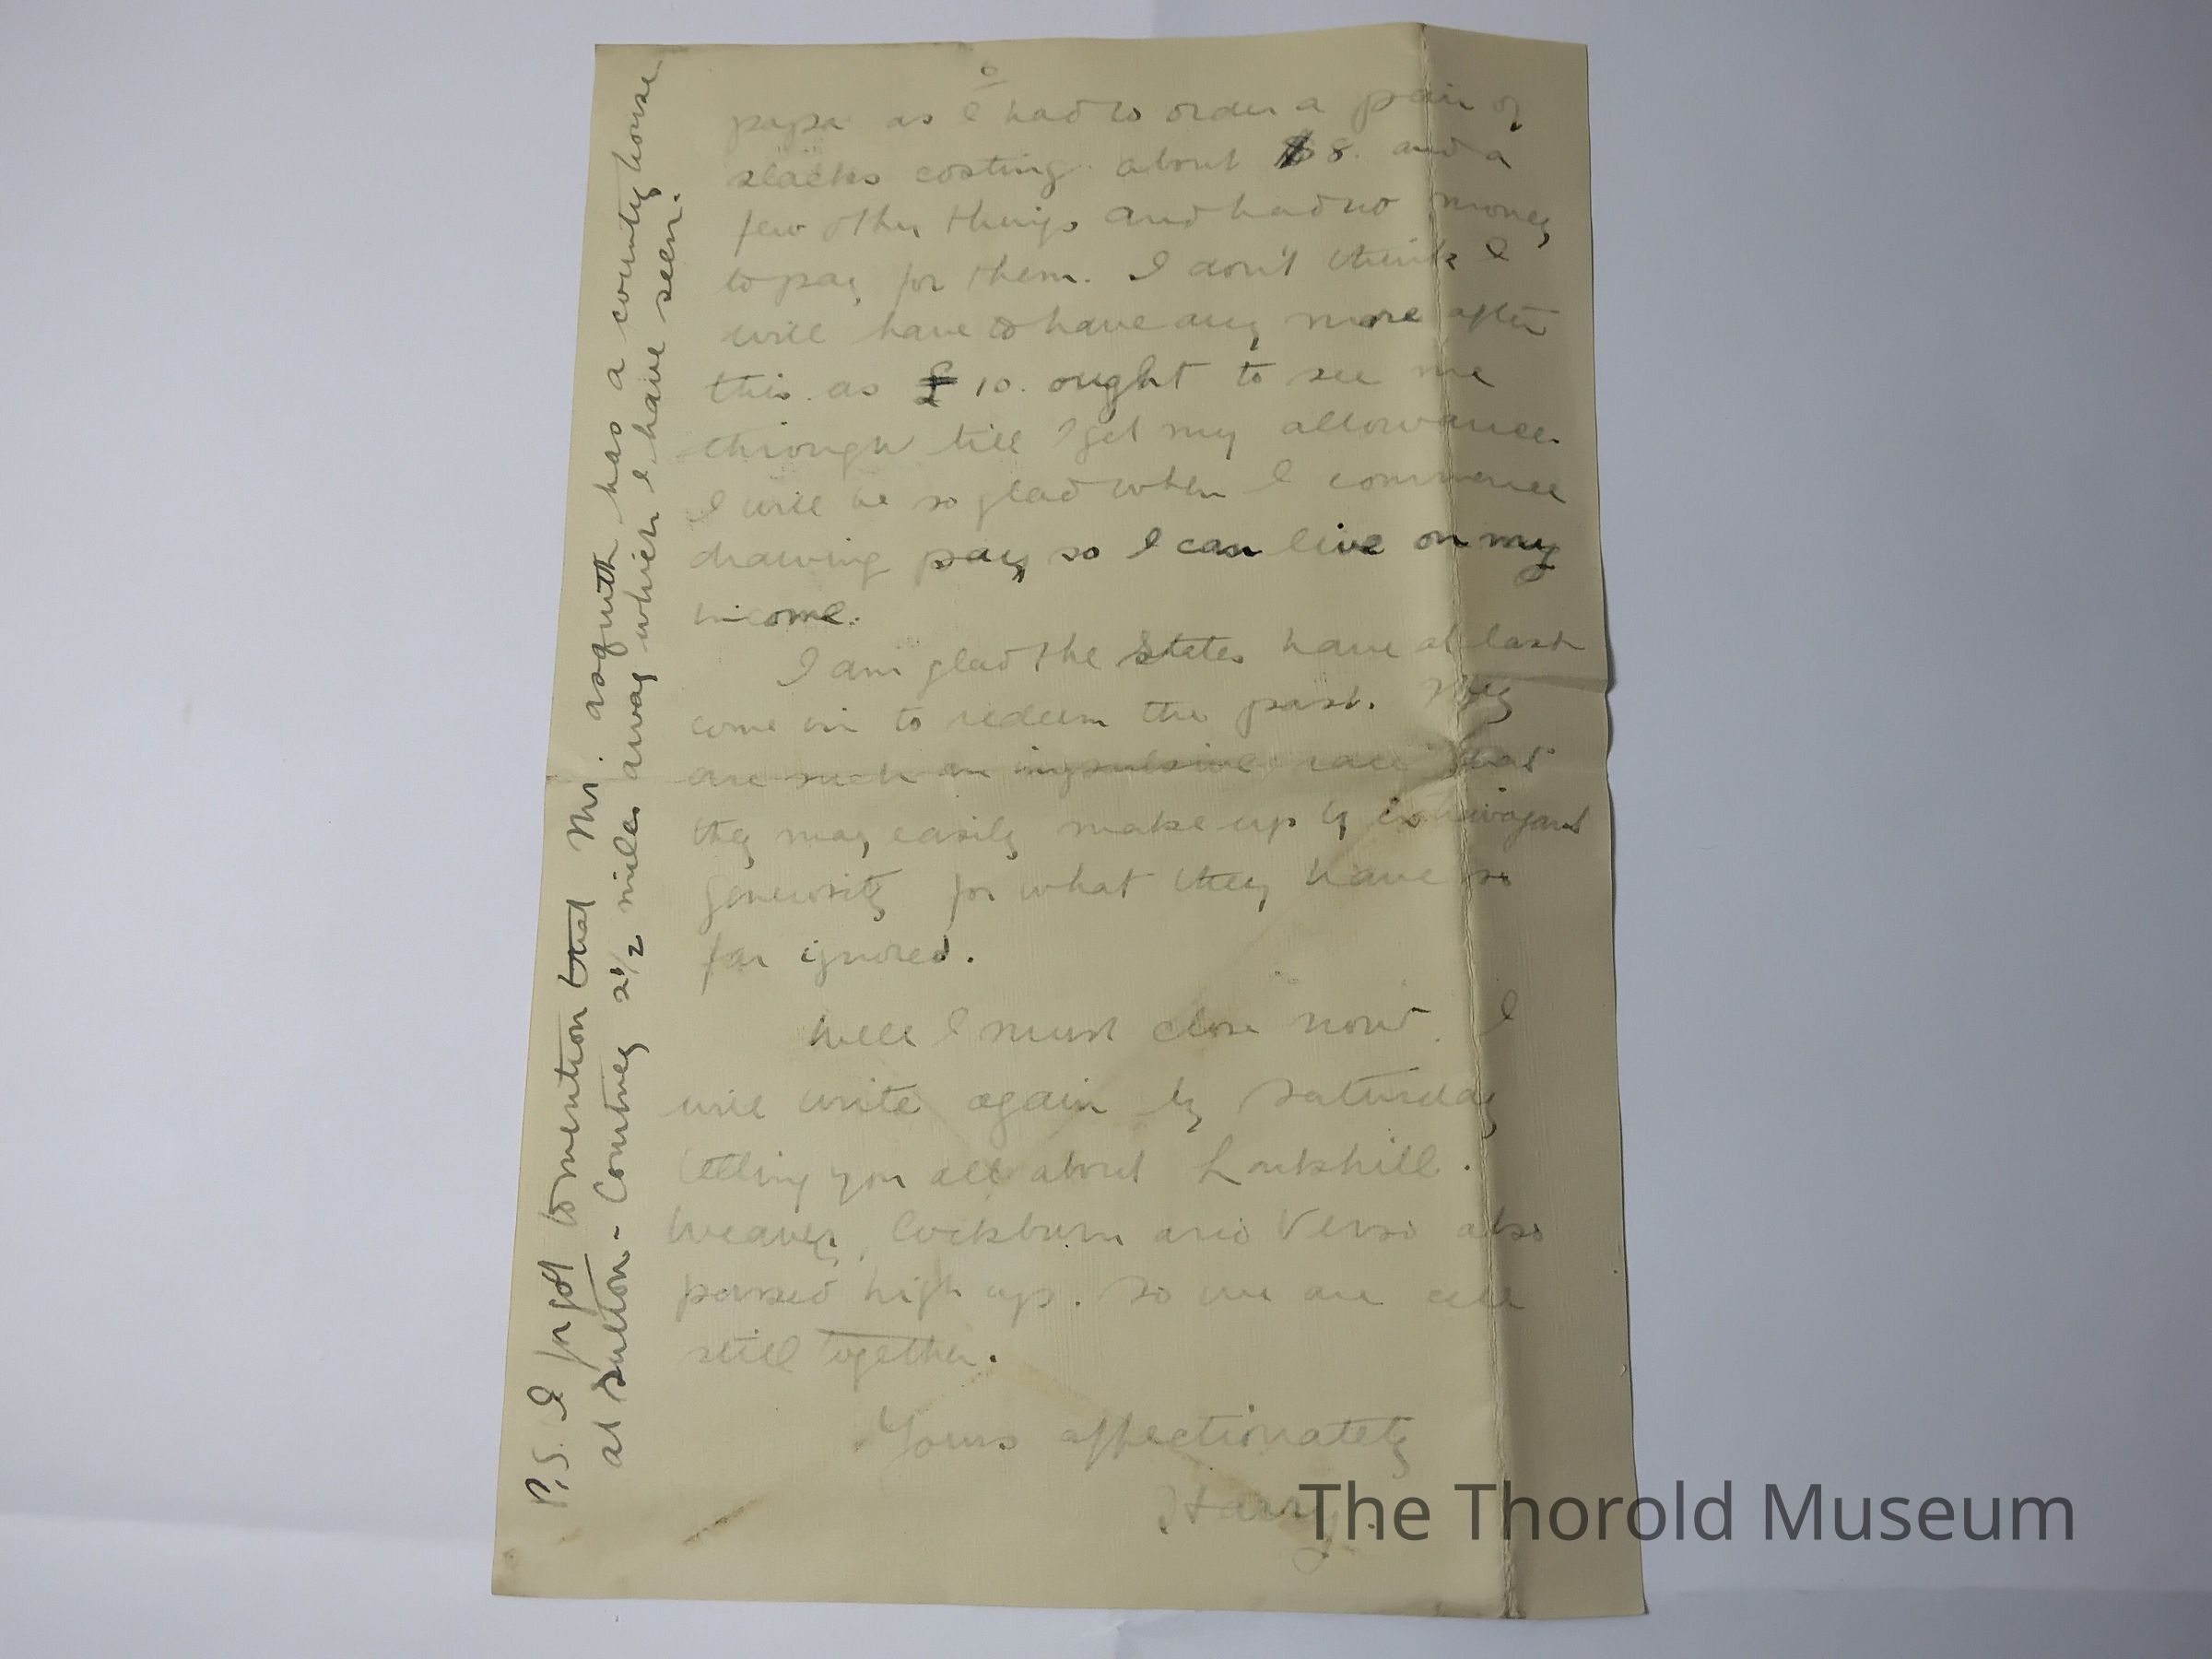 papa as I had to order a pair of
slacks costing about $8. and a
few other things and had no money
to pay for them. I don't think I
will have to have any more after
this. as £10. ought to see me
through till I get my allowance.
I will be so glad when I commence
drawing pay, so I can live on my
income.
I am glad the States have at last
come in to redeem the past. They
are such an impulsive race that
they may easily make up by extravagant
generosity for what they have so
far ignored.
Well I must close now. I
will write again by Saturday
telling you all about
Weaver, Cockburn and also
passed high up. So we are all
still together.
Yours affectionately
Harry.
P.S. I forgot to mention that Mr. Asquith has a country house
at Sutton-Courtney 2 1/2 miles away which I have seen.
The Thorold Museum